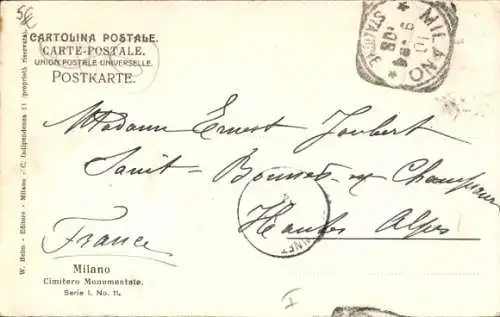 CARTOLINA POSTALE.
CARTE-POSTALE.
UNION POSTALE UNIVERSELLE.
POSTKARTE.
MILANO
Madame Ernest Joubert
Saint-Bonnet en Champsaur
Hautes Alpes
France
Milano
Cimitero Monumentale.
Serie I. No. 11.
W. Heim - Editore - Milano - C. Indipendenza 11 (proprietà riservata).